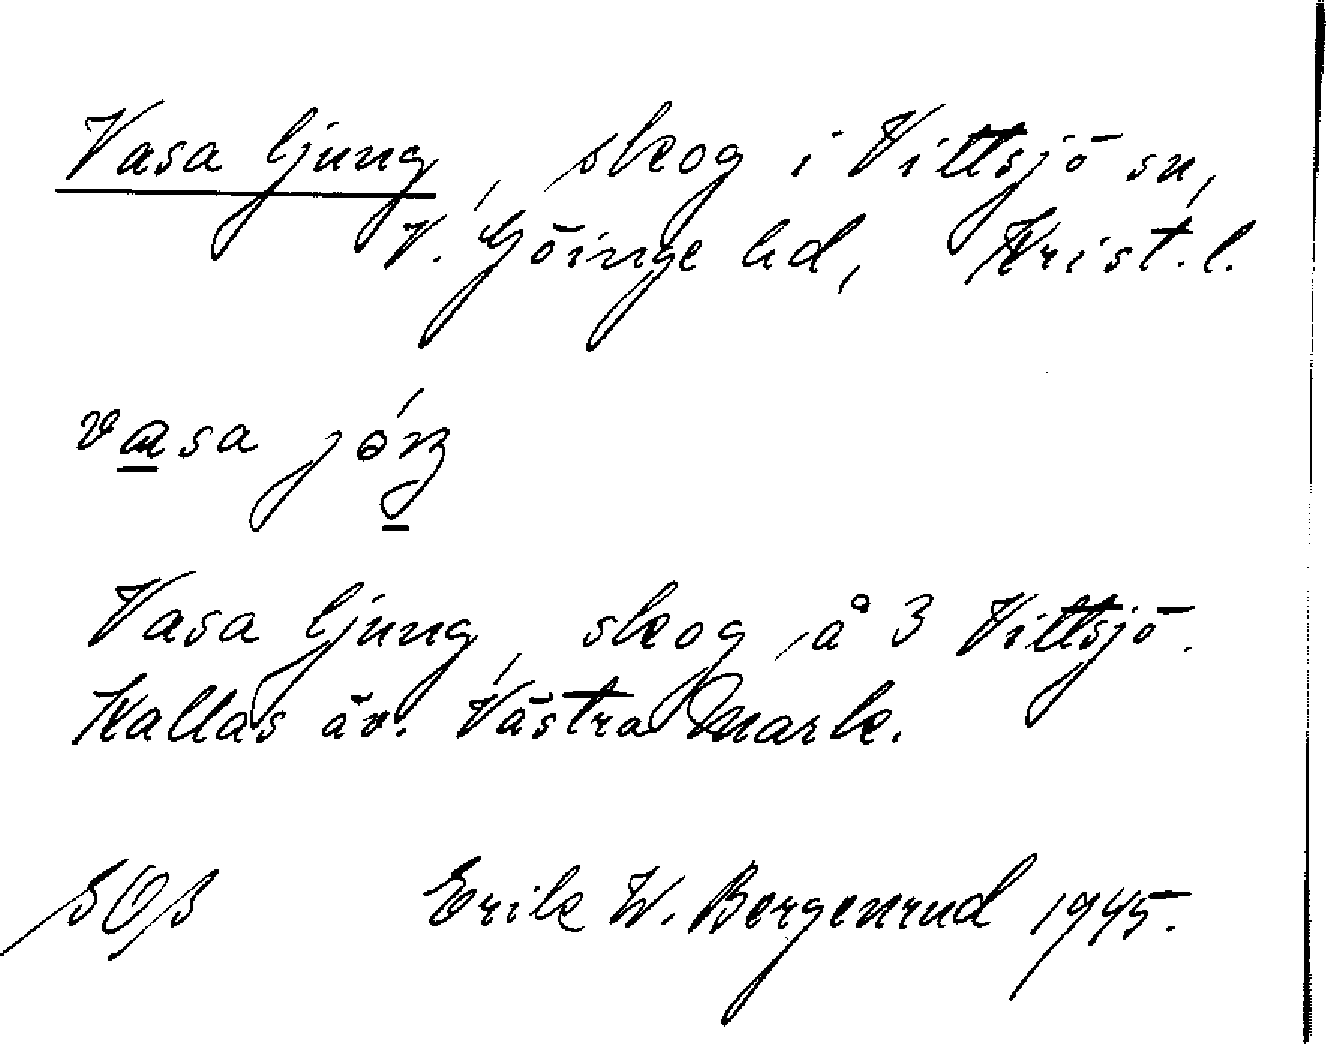 Vasa ljung, skog i Vittsjö sn,
V. Göinge hd, Krist. l.
vasa
Vasa ljung, skog å 3 Vittsjö.
Kallas äv. Västra Mark.
SOS Erik W. Bergenrud 1945.